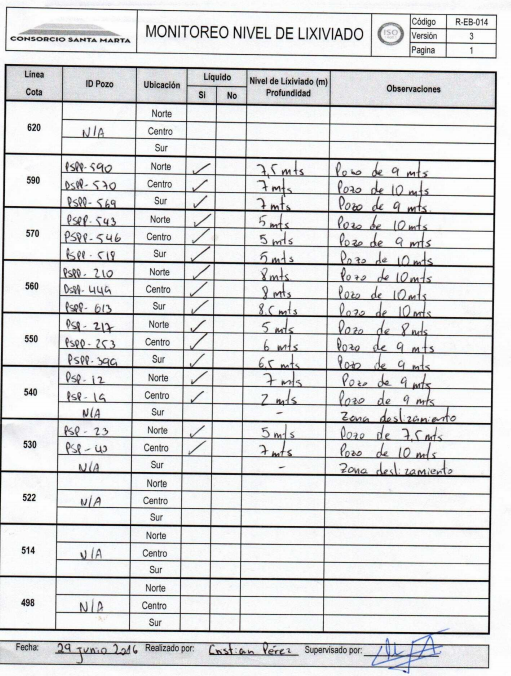 CONSORCIO SANTA MARTA
MONITOREO NIVEL DE LIXIVIADO
ISO
Código R-EB-014
Versión 3
Pagina 1
Linea Cota ID Pozo Ubicación Líquido Si No Nivel de Lixiviado (m) Profundidad Observaciones
620 Norte
N/A Centro
Sur
590 PSPP-590 Norte ✓ 7,5 mts Pozo de 9 mts
PSPP-570 Centro ✓ 7 mts Pozo de 10 mts
PSPP-569 Sur ✓ 7 mts Pozo de 9 mts
570 PSPP-543 Norte ✓ 5 mts Pozo de 10 mts
PSPP-546 Centro ✓ 5 mts Pozo de 9 mts
PSPP-518 Sur ✓ 5 mts Pozo de 10 mts
560 PSPP-210 Norte ✓ 8 mts Pozo de 10 mts
PSPP-449 Centro ✓ 8 mts Pozo de 10 mts
PSPP-613 Sur ✓ 8,5 mts Pozo de 10 mts
550 PSP-217 Norte ✓ 5 mts Pozo de 8 mts
PSPP-253 Centro ✓ 6 mts Pozo de 9 mts
PSPP-399 Sur ✓ 6,5 mts Pozo de 9 mts
540 PSP-12 Norte ✓ 7 mts Pozo de 9 mts
PSP-19 Centro ✓ 2 mts Pozo de 9 mts
N/A Sur - Zona deslizamiento
530 PSP-23 Norte ✓ 5 mts Pozo de 7,5 mts
PSP-40 Centro ✓ 7 mts Pozo de 10 mts
N/A Sur - Zona deslizamiento
522 Norte
N/A Centro
Sur
514 Norte
N/A Centro
Sur
498 Norte
N/A Centro
Sur
Fecha: 29 Junio 2016 Realizado por: Cristian Pérez Supervisado por: